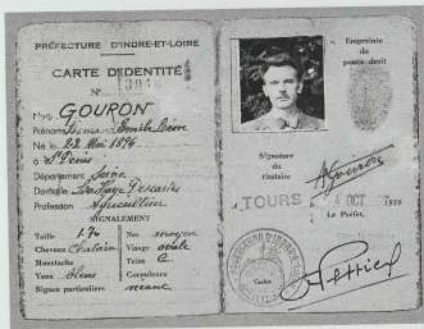 PRÉFECTURE D'INDRE-ET-LOIRE
CARTE D'IDENTITÉ
N°
Nom GOURON
Prénoms Emile Léon
Né le 22 Mai 1896
à St Denis
Département Seine
Domicile La Haye Descartes
Profession Agriculteur
SIGNALEMENT
Taille 1.70
Cheveux Chatain
Moustache
Yeux bleus
Signes particuliers néant
Nez moyen
Visage ovale
Teint C.
Corpulence
Empreinte
du
pouce droit
Signature
du
titulaire
AGouron
A TOURS OCT
Le Préfet,
Cachet